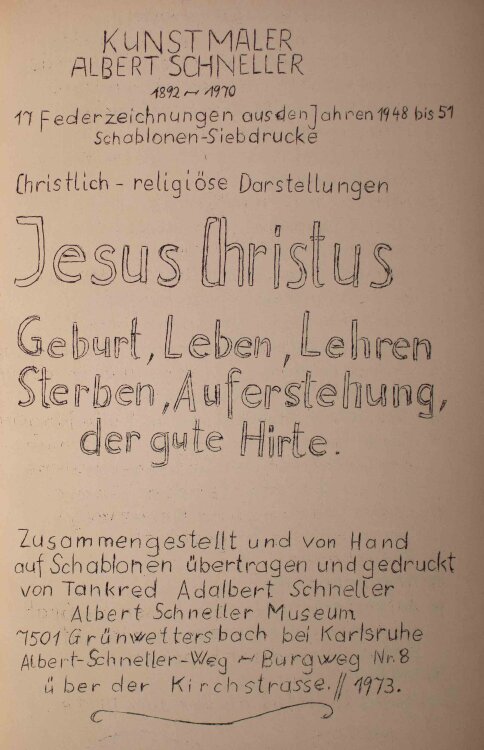 KUNSTMALER
ALBERT SCHNELLER
1892 ~ 1970
17 Federzeichnungen aus den Jahren 1948 bis 51
Schablonen-Siebdrucke
Christlich - religiöse Darstellungen
Jesus Christus
Geburt, Leben, Lehren
Sterben, Auferstehung,
der gute Hirte.
Zusammengestellt und von Hand
auf Schablonen übertragen und gedruckt
von Tankred Adalbert Schneller
Albert Schneller Museum
7501 Grünwettersbach bei Karlsruhe
Albert-Schneller-Weg ~ Burgweg Nr. 8
über der Kirchstrasse. // 1973.